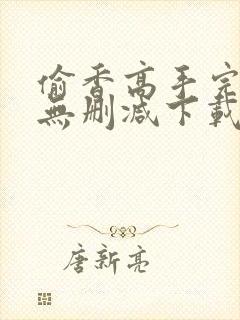 偷香高手完
無刪減下載
唐新亮